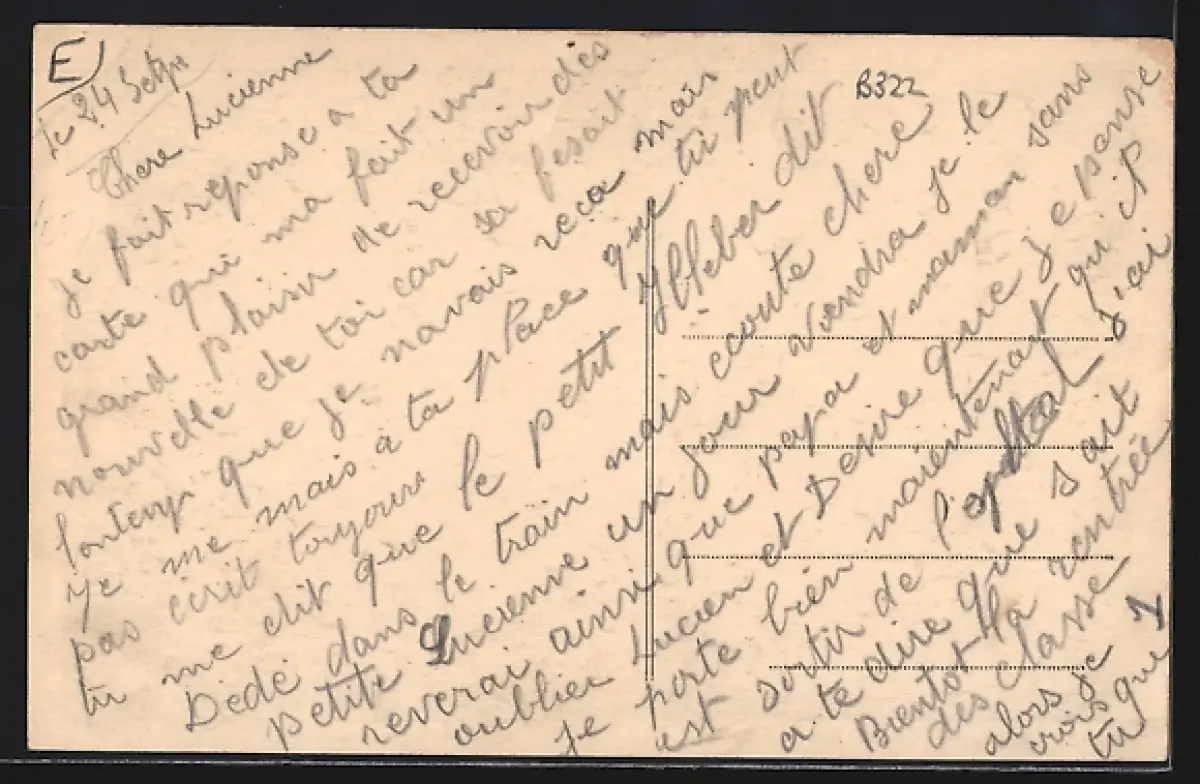 E
B322
le 24 Sept
Chere Lucienne
je fait reponse a ta
carte qui ma fait un
grand plaisir de recevoir des
nouvelle de toi car sa fesait
lontemp que je navais reca mais
je me mais a ta place que tu peut
pas ecrit toujours le petit dit
tu me dit que le petit
Dédé dans le train mais ecoute chere
petite Lucienne un jour viendra je le
reverai ainsi que papa et maman sans
oublier Lucien et Desire que je pense
je porte bien maientenant qu il
est sortir de l'opital j'ai
a te dire que sait
Bientot la rentrée
des classe
alors je
crois
tu que